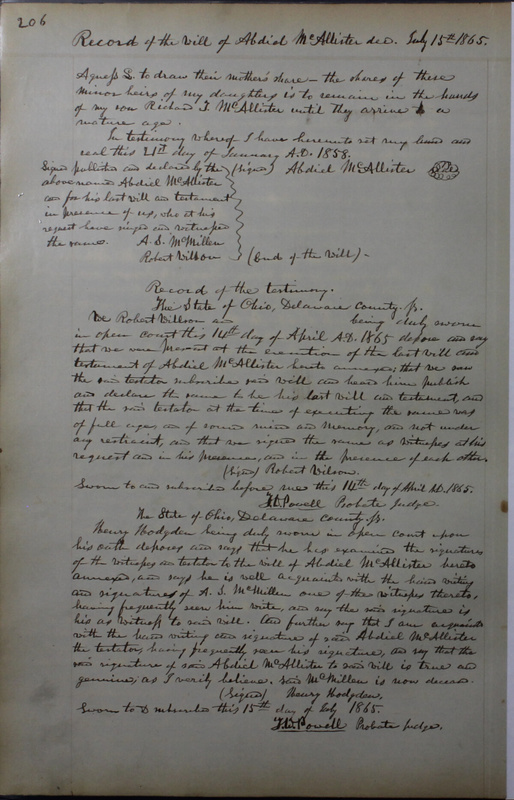 206
Record of the will of Abdiel McAllister dec. July 15th 1865.
Agness S. to draw their mother's share – the shares of these
minor heirs of my daughters is to remain in the hands
of my son Richard T. McAllister until they arrive to a
mature age.
In testimony whereof I have hereunto set my hand and
seal this 21st day of January A.D. 1858.
Signed published and declared by the (Signed) Abdiel McAllister
above named Abdiel McAllister
as for his last will and testament
in presence of us, who at his
request have signed and witnessed
the same. A. S. McMillen
Robert Willson (End of the Will) –
Record of the testimony.
The State of Ohio, Delaware County. ss.
We Robert Willson and being duly sworn
in open court this 14th day of April A.D. 1865 depose and say
that we were present at the execution of the last will and
testament of Abdiel McAllister hereto annexed, that we saw
the said testator subscribe said will and heard him publish
and declare the same to be his last will and testament, and
that the said testator at the time of executing the same was
of full age, and of sound mind and memory, and not under
any restraint, and that we signed the same as witnesses at his
request and in his presence, and in the presence of each other.
(Signed) Robert Wilson.
Sworn to and subscribed before me this 14th day of April A.D. 1865.
T.W. Powell Probate Judge.
The State of Ohio, Delaware County. ss.
Henry Hodgden being duly sworn in open court upon
his oath deposes and says that he has examined the signatures
of the witnesses and testator to the will of Abdiel McAllister hereto
annexed, and says he is well acquainted with the hand writing
and signatures of A. S. McMillen one of the witnesses thereto,
having frequently seen him write, and say the said signature is
his as witness to said will. And further say that I am acquainted
with the hand writing and signature of said Abdiel McAllister
the testator, having frequently seen his signature, and say that the
said signature of said Abdiel McAllister to said will is true and
genuine, as I verily believe. said McMillen is now deceased.
(Signed) Henry Hodgden.
Sworn to & subscribed this 15th day of July 1865.
T.W. Powell Probate Judge.